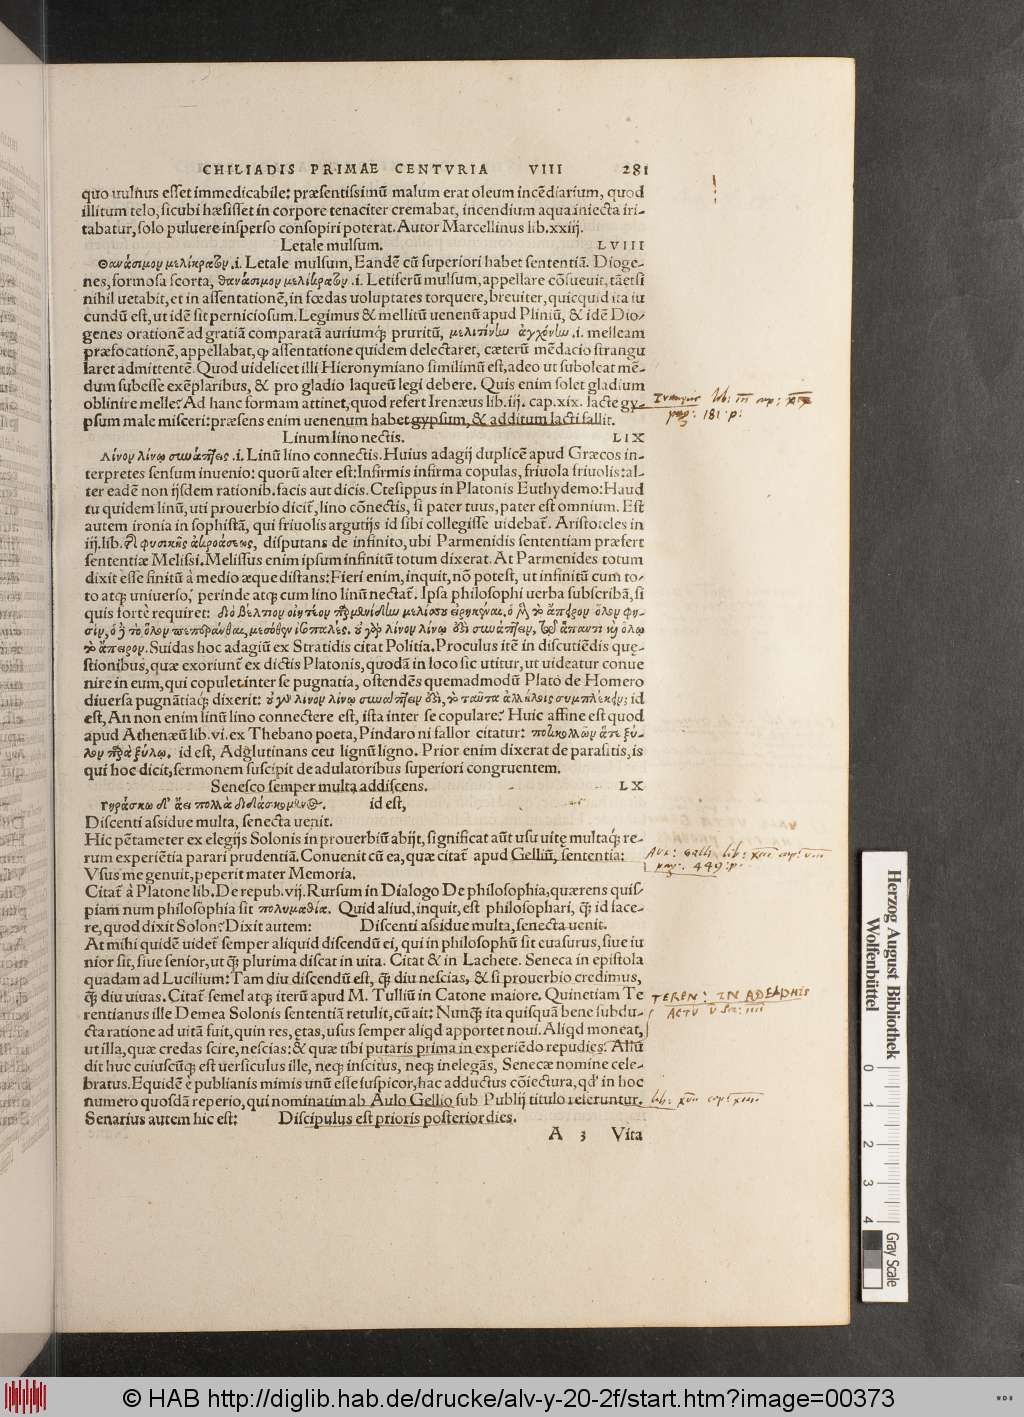 CHILIADIS PRIMAE CENTVRIA VIII 281
quo uulnus esset immedicabile: præsentissimū malum erat oleum incēdiarium, quod
illitum telo, sicubi hæsisset in corpore tenaciter cremabat, incendium aqua iniecta iri-
tabatur, solo puluere insperso consopiri poterat. Autor Marcellinus lib. xxiij.
Letale mulsum. LVIII
Θανάσιμον μελίκρατον .i. Letale mulsum, Eandē cū superiori habet sententiā. Dioge-
nes, formosa scorta, θανάσιμον μελίκρατον .i. Letiferū mulsum, appellare cōsueuit, tāetsi
nihil uetabit, et in assentationē, in fœdas uoluptates torquere, breuiter, quicquid ita iu
cundū est, ut idē sit perniciosum. Legimus & mellitū uenenū apud Pliniū, & idē Dio-
genes orationē ad gratiā comparatā auriumq́; pruritū, μελιτίνην ἀγχόνην .i. melleam
præfocationē, appellabat, q̄ assentatione quidem delectaret, cæterū mēdacio strangu
laret admittentē. Quod uidelicet illi Hieronymiano simillimū est, adeo ut suboleat mē-
dum subesse exēplaribus, & pro gladio laqueū legi debere. Quis enim solet gladium
oblinire melle? Ad hanc formam attinet, quod refert Irenæus lib. iij. cap. xix. lacte gy-
psum male misceri: præsens enim uenenum habet gypsum, & additum lacti fallit.
lib: III cap: XIX
pag: 181 p:
Linum lino nectis. LIX
Λίνον λίνῳ συνάπτεις .i. Linū lino connectis. Huius adagij duplicē apud Græcos in-
terpretes sensum inuenio: quorū alter est: Infirmis infirma copulas, friuola friuolis: al-
ter eadē non ijsdem rationib. facis aut dicis. Ctesippus in Platonis Euthydemo: Haud
tu quidem linū, uti prouerbio dicit̄, lino cōnectis, si pater tuus, pater est omnium. Est
autem ironia in sophistā, qui friuolis argutijs id sibi collegisse uidebat̄. Aristoteles in
iij. lib. φυσικῆς ἀκροάσεως, disputans de infinito, ubi Parmenidis sententiam præfert
sententiæ Melissi. Melissus enim ipsum infinitū totum dixerat. At Parmenides totum
dixit esse finitū à medio æque distans: Fieri enim, inquit, nō potest, ut infinitū cum to-
to atq; uniuerso, perinde atq; cum lino linū nectat̄. Ipsa philosophi uerba subscribā, si
quis fortè requiret: διὸ βέλτιον οἰητέον παρμενίδην μελίσσου εἰρηκέναι, ὁ μὲν τὸ ἄπειρον ὅλον φη-
σὶν, ὁ δὲ τὸ ὅλον πεπεράνθαι, μεσόθεν ἰσοπαλές. οὐ γὰρ λίνον λίνῳ ἐστὶ συνάπτειν, τῷ ἅπαντι καὶ ὅλῳ
τὸ ἄπειρον. Suidas hoc adagiū ex Stratidis citat Politia. Proculus itē in discutiēdis quę-
stionibus, quæ exoriunt̄ ex dictis Platonis, quodā in loco sic utitur, ut uideatur conue
nire in eum, qui copulet inter se pugnatia, ostendēs quemadmodū Plato de Homero
diuersa pugnātiaq́; dixerit: οὐ γὰρ λίνον λίνῳ συνάπτειν ἐστὶ, τὸ ταῦτα ἀλλήλοις συμπλέκειν; id
est, An non enim linū lino connectere est, ista inter se copulare? Huic affine est quod
apud Athenæū lib. vi. ex Thebano poeta, Pindaro ni fallor citatur: ποτικολλῶν ἅτε ξύ-
λον παρὰ ξύλῳ. id est, Adglutinans ceu lignū ligno. Prior enim dixerat de parasitis, is
qui hoc dicit, sermonem suscipit de adulatoribus superiori congruentem.
Senesco semper multa addiscens. LX
Γηράσκω δ' ἀεὶ πολλὰ διδασκόμενος. id est,
Discenti assidue multa, senecta uenit.
Hic pētameter ex elegijs Solonis in prouerbiū abijt, significat aūt usu uitę multaq́; re-
rum experiētia parari prudentiā. Conuenit cū ea, quæ citat̄ apud Gelliū, sententia:
Vsus me genuit, peperit mater Memoria.
Aul: Gelli lib: XIII cap: VIII
pag: 449 p:
Citat̄ à Platone lib. De repub. vij. Rursum in Dialogo De philosophia, quærens quis-
piam num philosophia sit πολυμαθία. Quid aliud, inquit, est philosophari, q̄ id face-
re, quod dixit Solon? Dixit autem: Discenti assidue multa, senecta uenit.
At mihi quidē uidet̄ semper aliquid discendū ei, qui in philosophū sit euasurus, siue iu
nior sit, siue senior, ut q̄ plurima discat in uita. Citat & in Lachete. Seneca in epistola
quadam ad Lucilium: Tam diu discendū est, q̄ diu nescias, & si prouerbio credimus,
q̄ diu uiuas. Citat̄ semel atq; iterū apud M. Tulliū in Catone maiore. Quinetiam Te
rentianus ille Demea Solonis sententiā retulit, cū ait: Nunq̄ ita quisquā bene subdu-
cta ratione ad uitā fuit, quin res, ętas, usus semper aliqd apportet noui. Aliqd moneat,
ut illa, quæ credas scire, nescias: & quæ tibi putaris prima in experiēdo repudies. Aliū
TEREN: IN ADELPHIS
ACTU V Sce: IIII
dit huc cuiuscūq; est uersiculus ille, neq; inscitus, neq; inelegās, Senecæ nomine cele-
bratus. Equidē è publianis mimis unū esse suspicor, hac adductus cōiectura, qd' in hoc
numero quosdā reperio, qui nominatim ab Aulo Gellio sub Publij titulo referuntur.
lib: XVII cap: XIIII
Senarius autem hic est: Discipulus est prioris posterior dies.
A 3 Vita
Herzog August Bibliothek
Wolfenbüttel
0 1 2 3 4
Gray Scale
© HAB http://diglib.hab.de/drucke/alv-y-20-2f/start.htm?image=00373